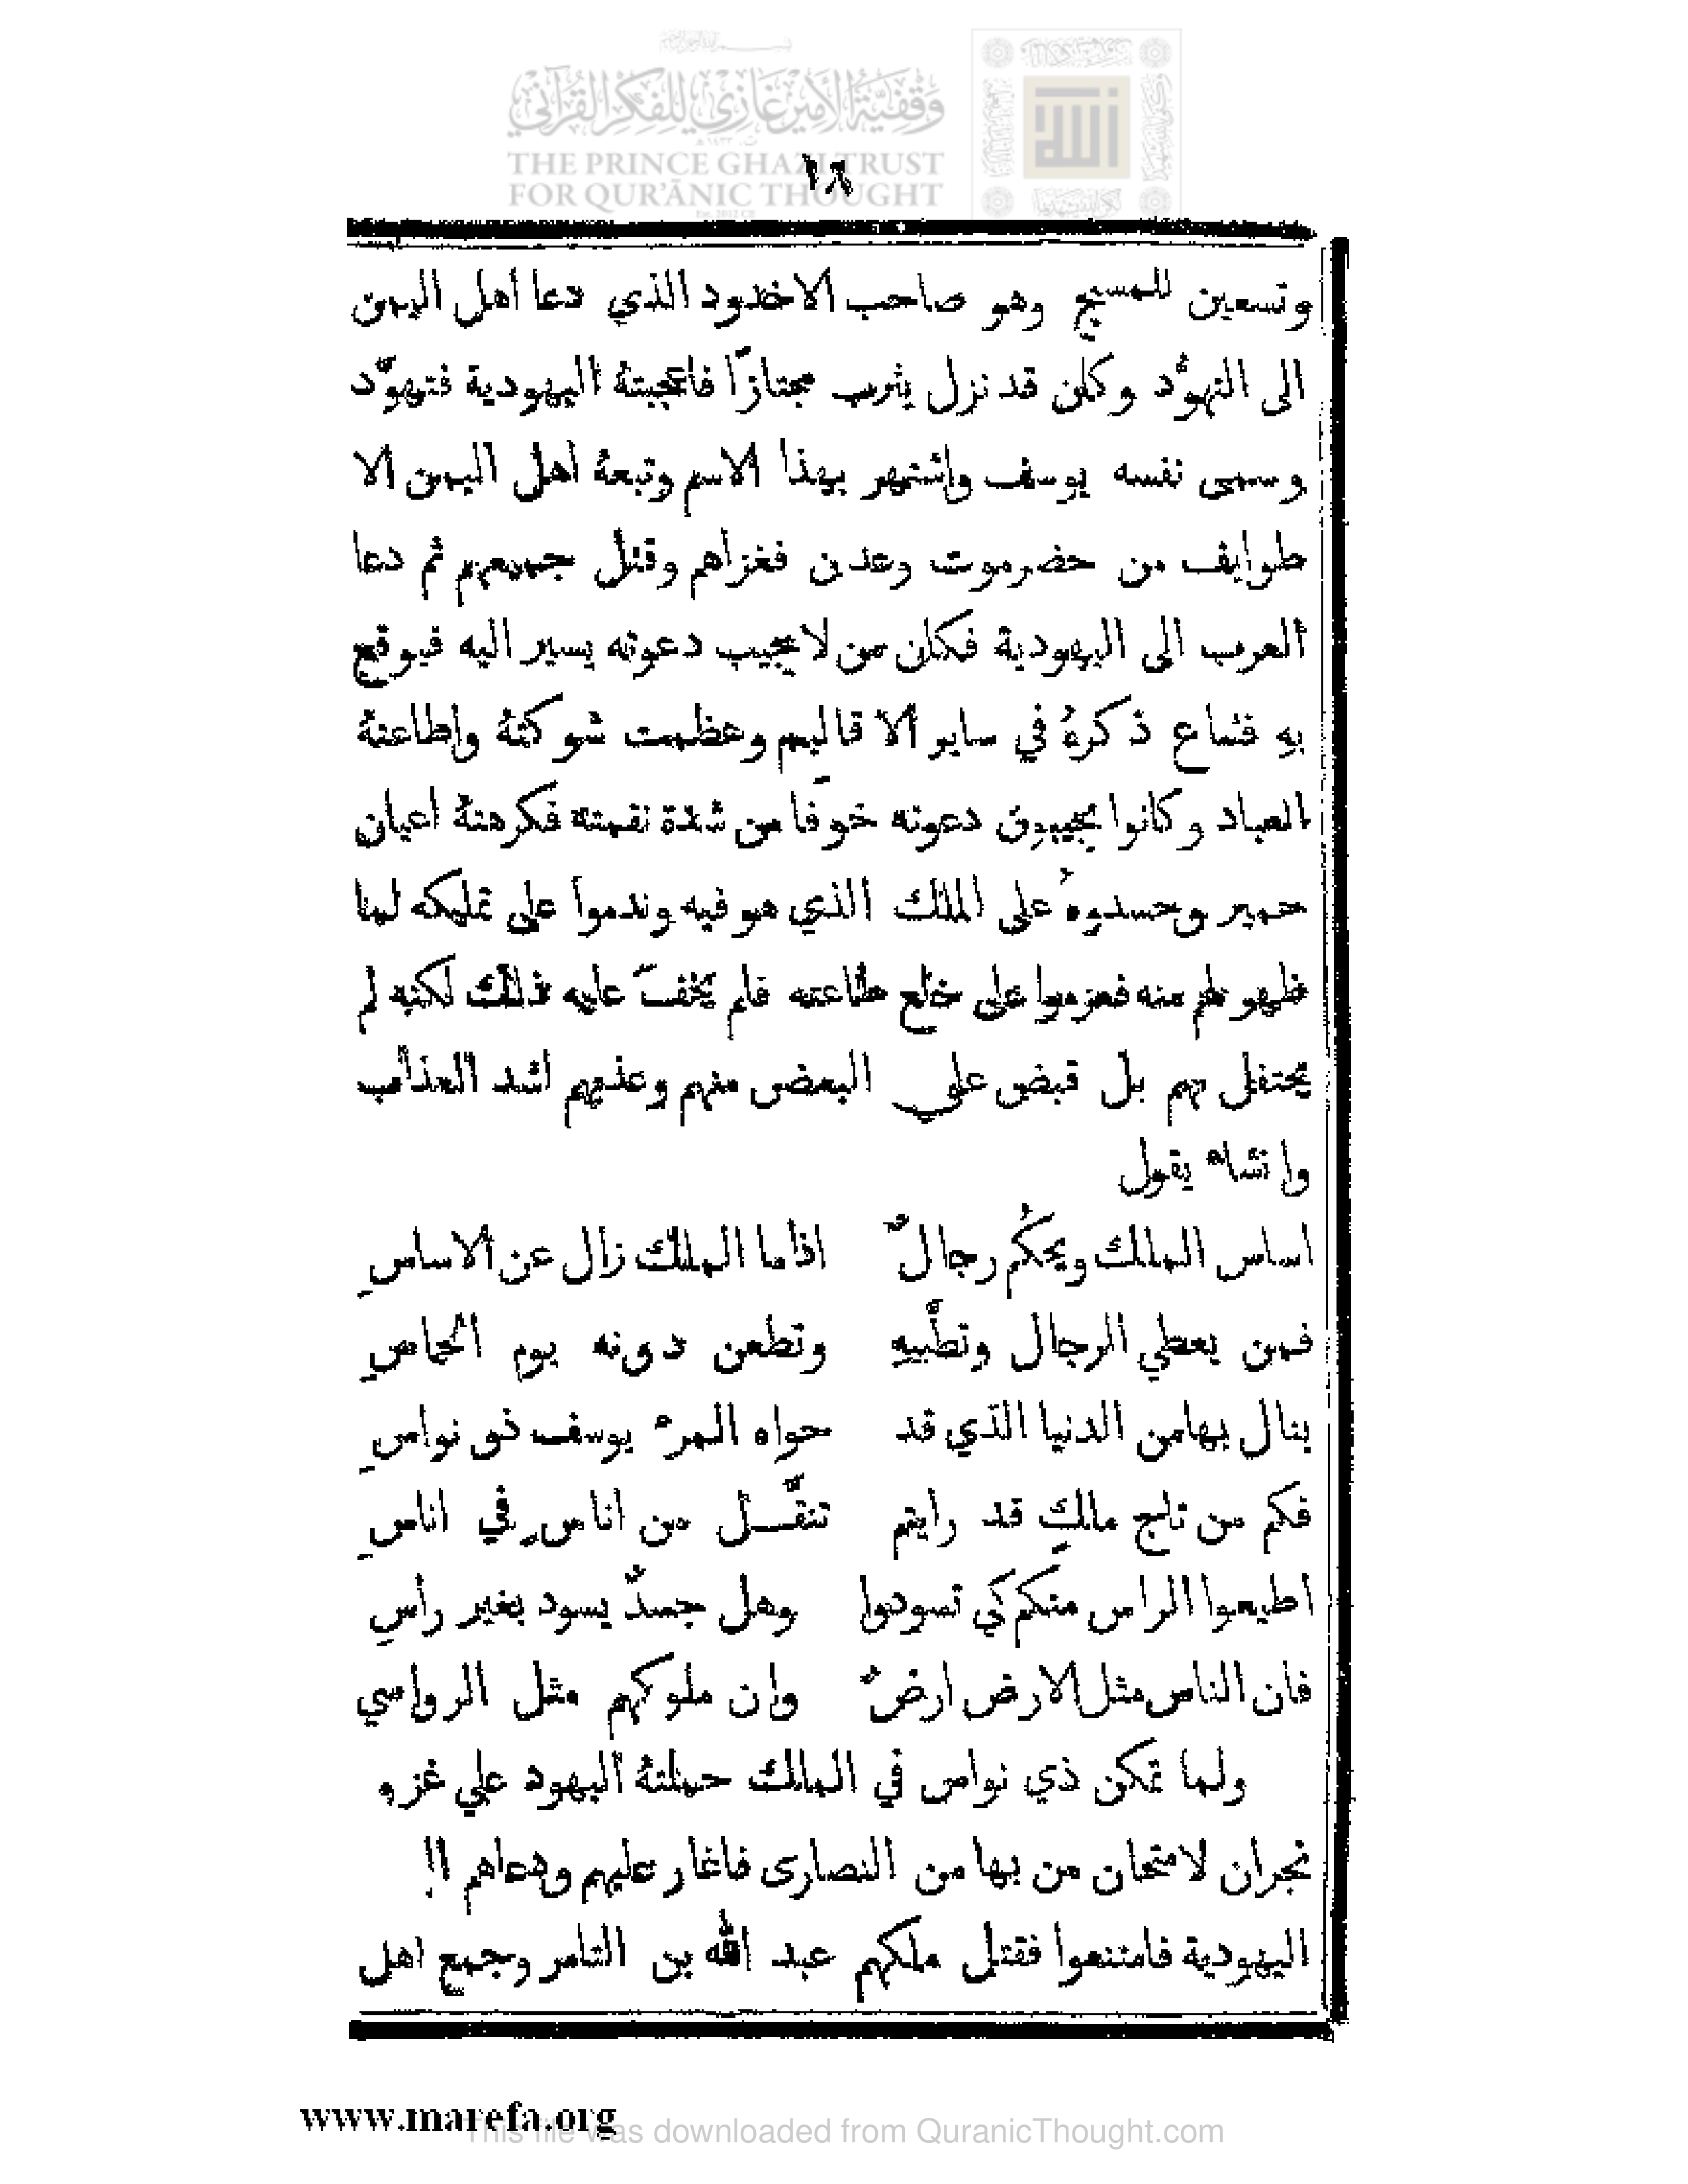 وقفية الأمير غازي للفكر القرآني
THE PRINCE GHAZI TRUST
FOR QUR'ĀNIC THOUGHT
١٨
وتسعين للمسيح وهو صاحب الاخدود الذي دعا أهل اليمن
الى التهوُّد وكان قد نزل يثرب مجتازًا فاعجبتهُ اليهودية فتهوَّد
وسمى نفسه يوسف واشتهر بهذا الاسم وتبعهُ اهل اليمن الا
طوايف من حضرموت وعدن فغزاهم وقتل جميعهم ثم دعا
العرب الى اليهودية فكان من لا يجيب دعوته يسير اليه فيوقع
بهِ فشاع ذكرهُ في ساير الاقاليم وعظمت شوكتهُ واطاعتهُ
العباد وكانوا يجيبون دعوته خوفًا من شدة نقمته فكرهتهُ اعيان
حمير وحسدوهُ على الملك الذي هو فيه وندموا على تمليكه لما
ظهر لهم منه فعزموا على خلع طاعته فلم يخفَ عليه ذلك لكنه لم
يحتفل بهم بل قبض على البعض منهم وعذبهم اشد العذاب
وانشاء يقول
اساس الملك ويحكُم رجالٌ اذا ما الملك زال عن الاساسِ
فمن يعطي الرجال وتطَّبيهِ وتطعن دونه يوم الحماسِ
ينال بها من الدنيا الذي قد حواه المرء يوسف ذو نواسِ
فكم من تاج مالكٍ قد رايتم تنقَّل من اناسٍ في اناسِ
اطيعوا الراس منكم كي تسودوا وهل جسدٌ يسود بغير رأسِ
فان الناس مثل الارض ارضٌ وان ملوكهم مثل الرواسي
ولما تمكن ذي نواس في الملك حملتهُ اليهود علي غزو
نجران لامتحان من بها من النصارى فاغار عليهم ودعاهم الى
اليهودية فامتنعوا فقتل ملكهم عبد الله بن الثامر وجمع اهل
www.marefa.org
This file was downloaded from QuranicThought.com